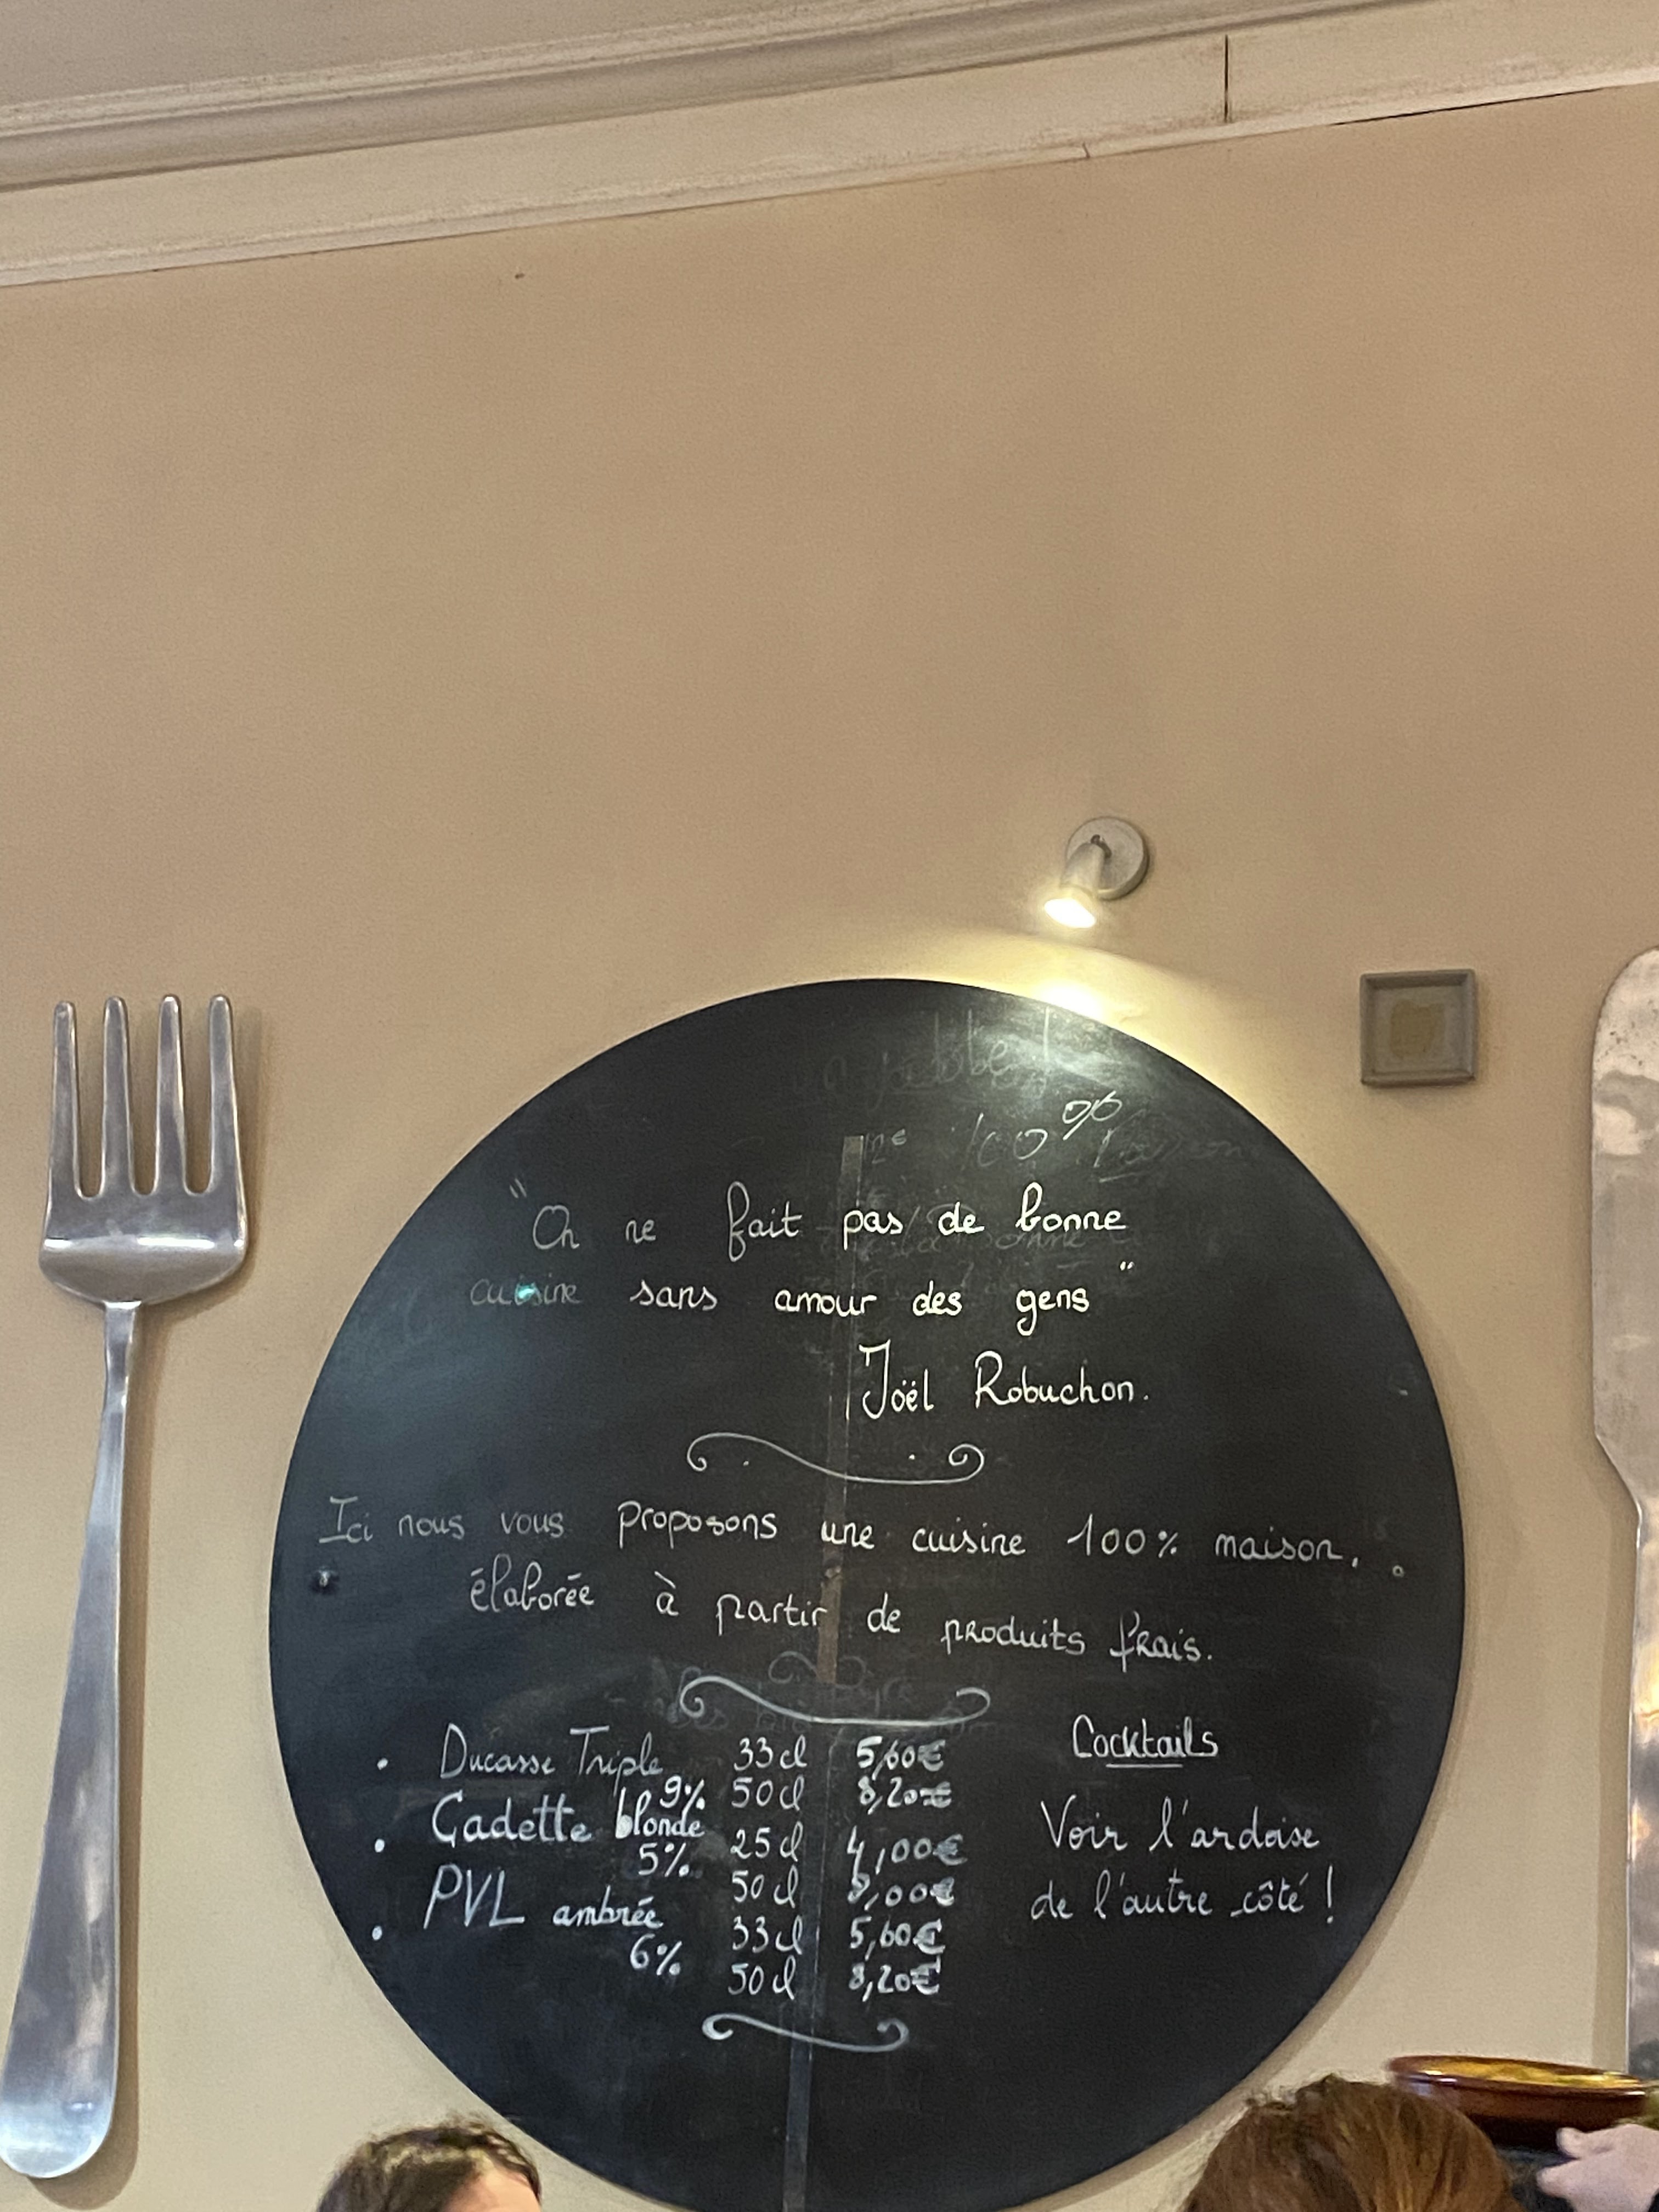 100%
"On ne fait pas de bonne
cuisine sans amour des gens"
Joël Robuchon.
Ici nous vous proposons une cuisine 100% maison.
élaborée à partir de produits frais.
• Ducasse Triple 33cl 5,60€
9% 50cl 8,20€
• Cadette blonde 25cl 4,00€
5% 50cl 8,00€
• PVL ambrée 33cl 5,60€
6% 50cl 8,20€
Cocktails
Voir l'ardoise
de l'autre côté !